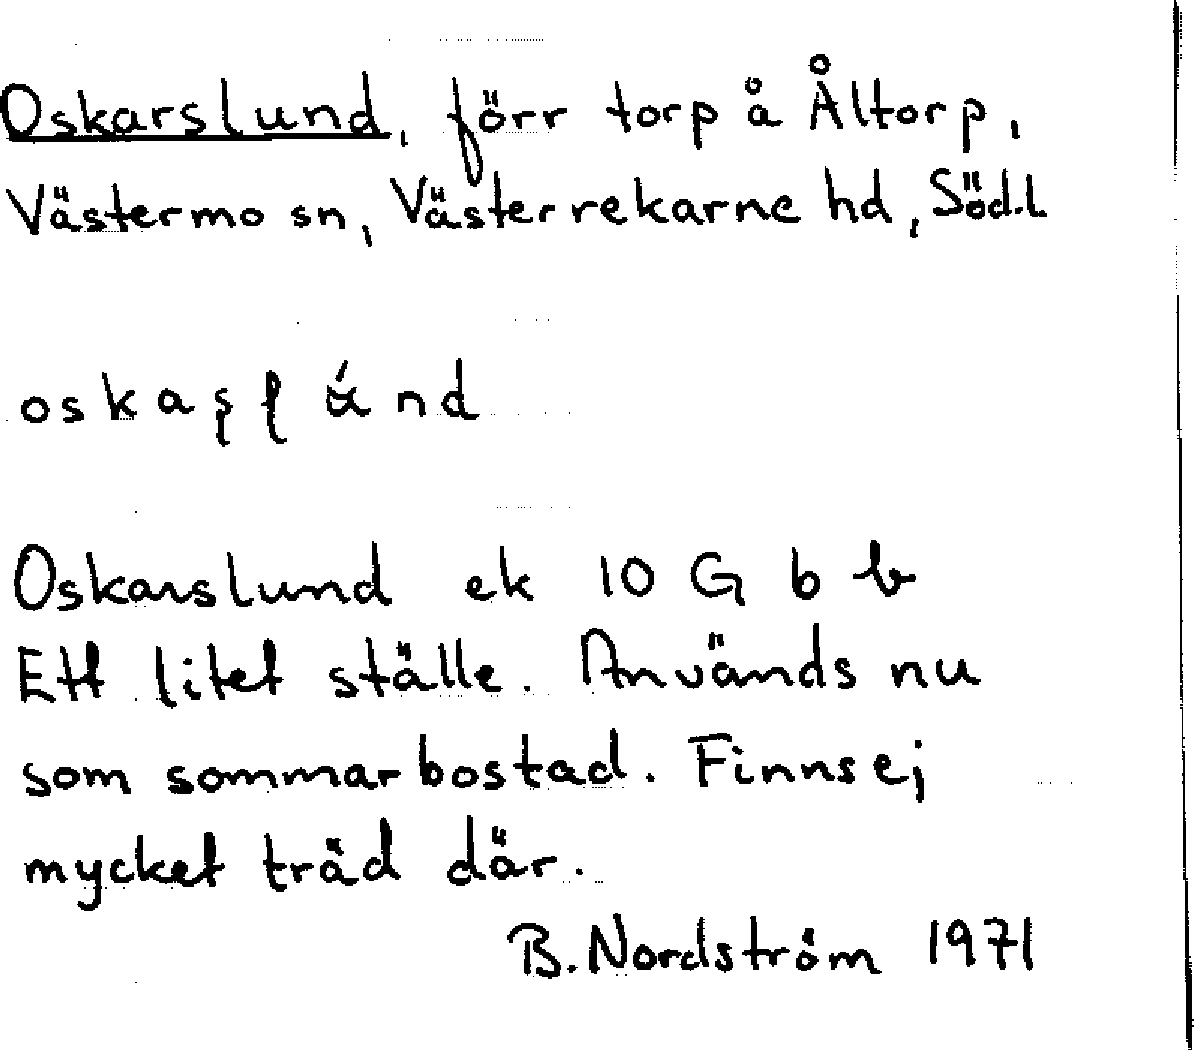 Oskarslund, förr torp å Åltorp,
Västermo sn, Västerrekarne hd, Söd.l
Oskarslund ek 10 G b b
Ett litet ställe. Används nu
som sommarbostad. Finns ej
mycket träd där.
B. Nordström 1971